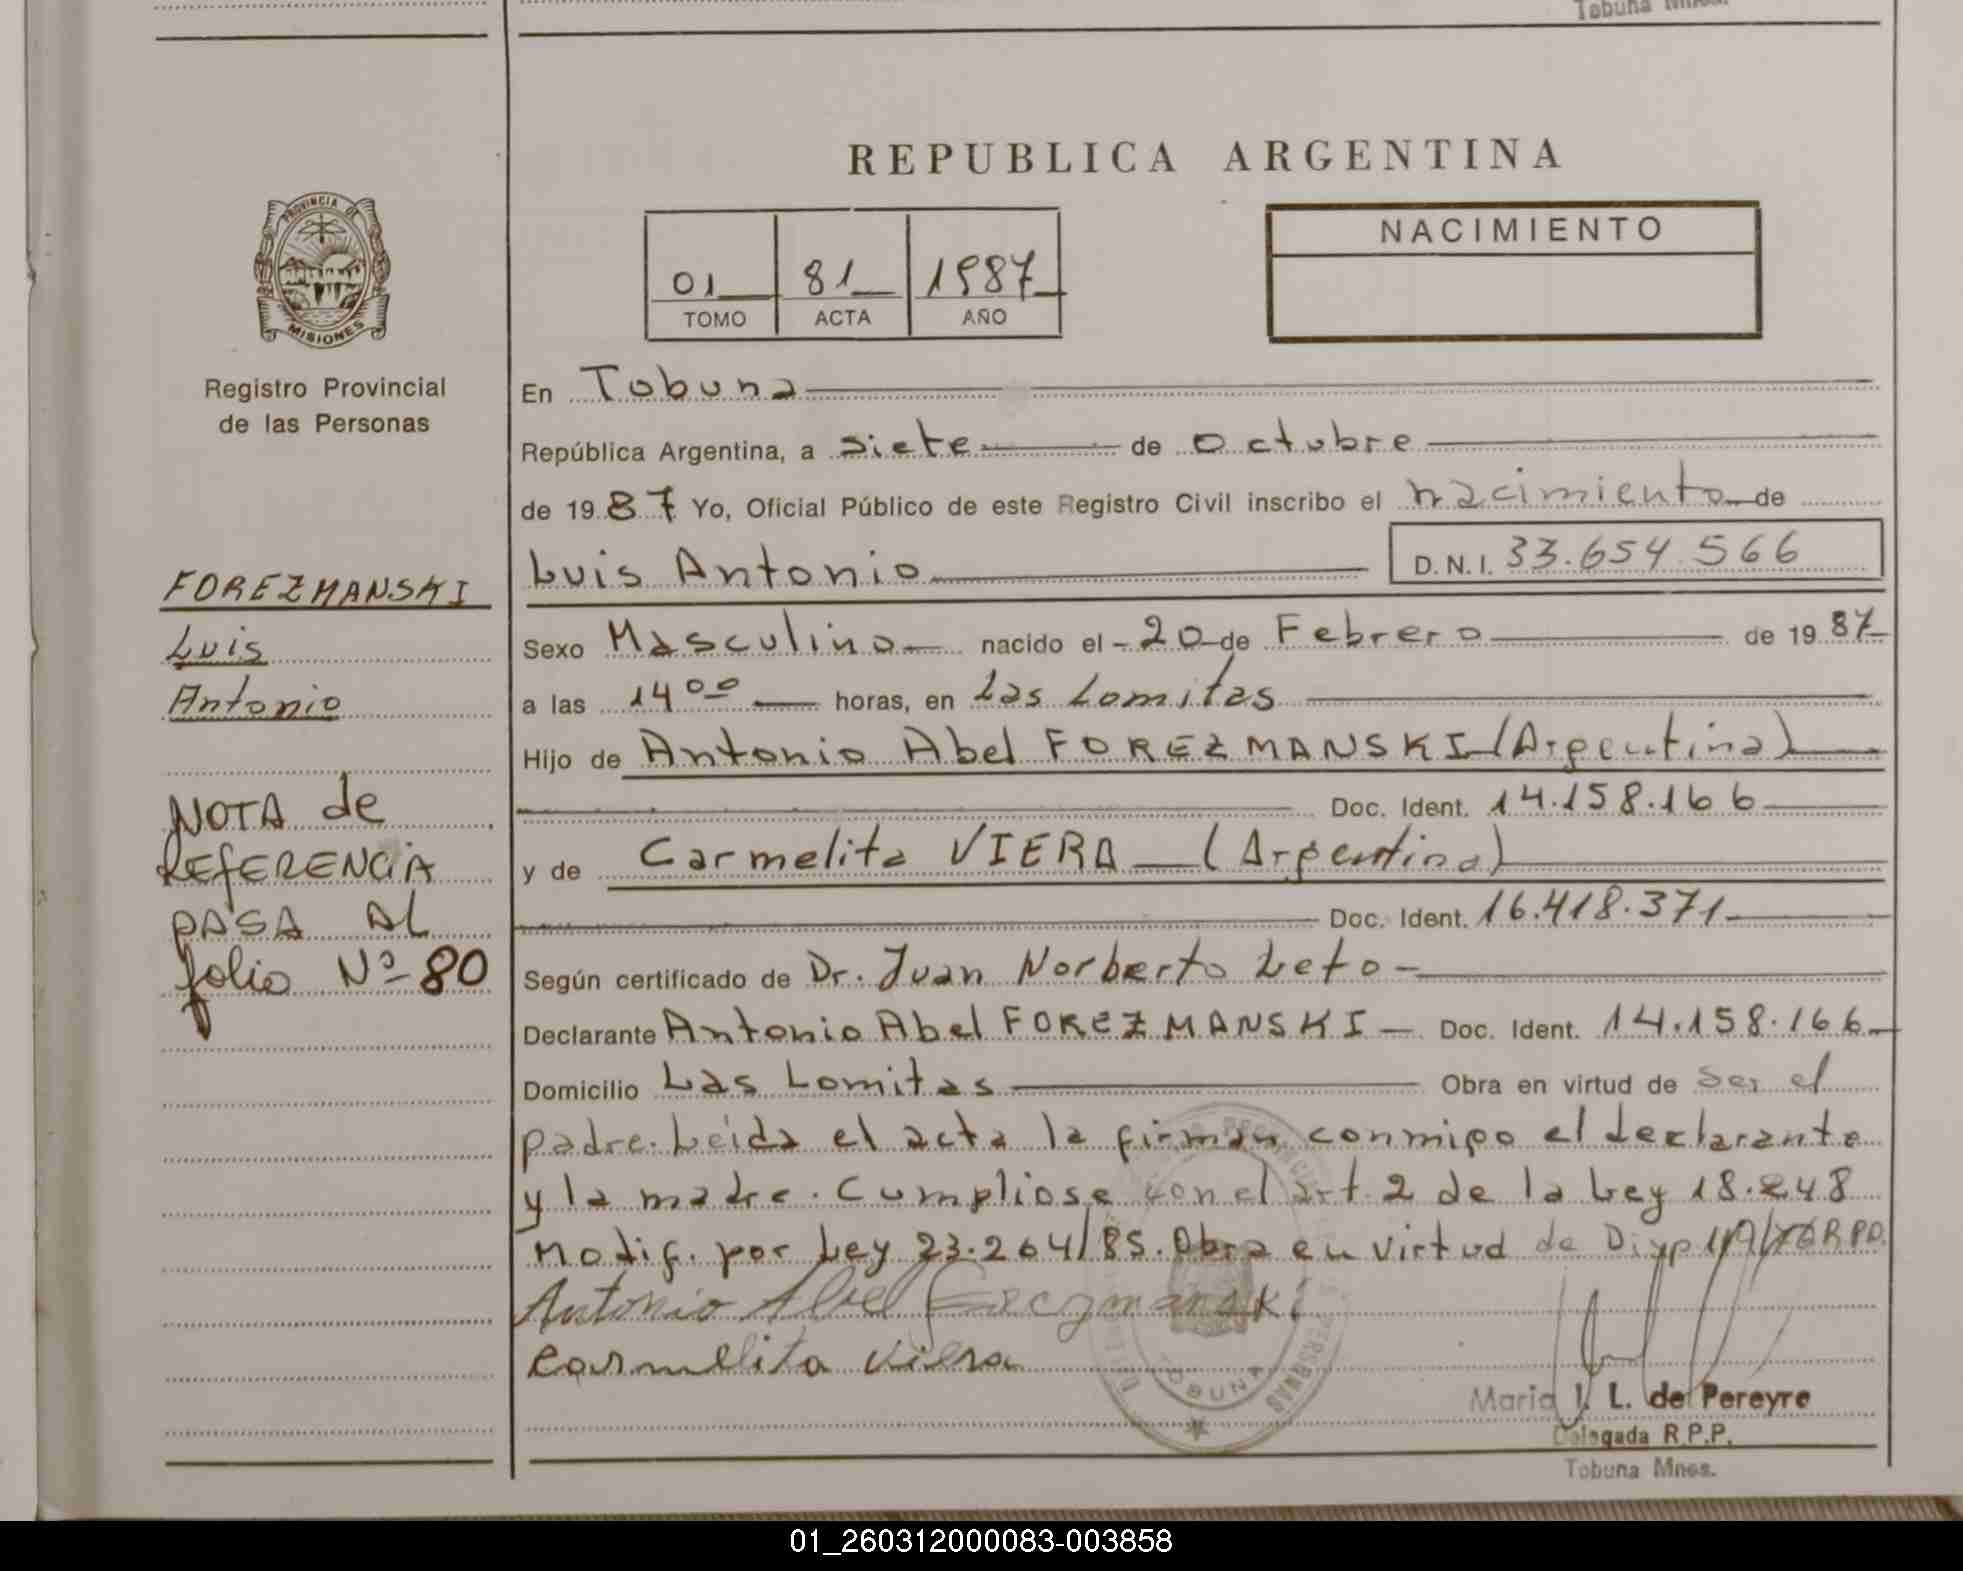 Tobuna Mnes.
REPUBLICA ARGENTINA
PROVINCIA DE
MISIONES
Registro Provincial
de las Personas
01 81 1987
TOMO ACTA AÑO
NACIMIENTO
En Tobuna
República Argentina, a siete de octubre
de 1987 Yo, Oficial Público de este Registro Civil inscribo el nacimiento de
Luis Antonio D.N.I. 33.654.566
FOREZMANSKI
Luis
Antonio
NOTA de
REFERENCIA
PASA AL
folio Nº 80
Sexo Masculino nacido el 20 de Febrero de 1987
a las 14 00 horas, en Las Lomitas
Hijo de Antonio Abel FOREZMANSKI (Argentina)
Doc. Ident. 14.158.166
y de Carmelita VIERA (Argentina)
Doc. Ident. 16.418.371
Según certificado de Dr. Juan Norberto Leto
Declarante Antonio Abel FOREZMANSKI Doc. Ident. 14.158.166
Domicilio Las Lomitas Obra en virtud de ser el
padre. Leída el acta la firman conmigo el declarante
y la madre. Cumpliose con el art. 2 de la Ley 18.248
Modif. por Ley 23.264/85. Obra en virtud de
Antonio Abel
Carmelita Viera
TOBUNA
Maria I. L. de Pereyre
Delegada R.P.P.
Tobuna Mnes.
01_260312000083-003858